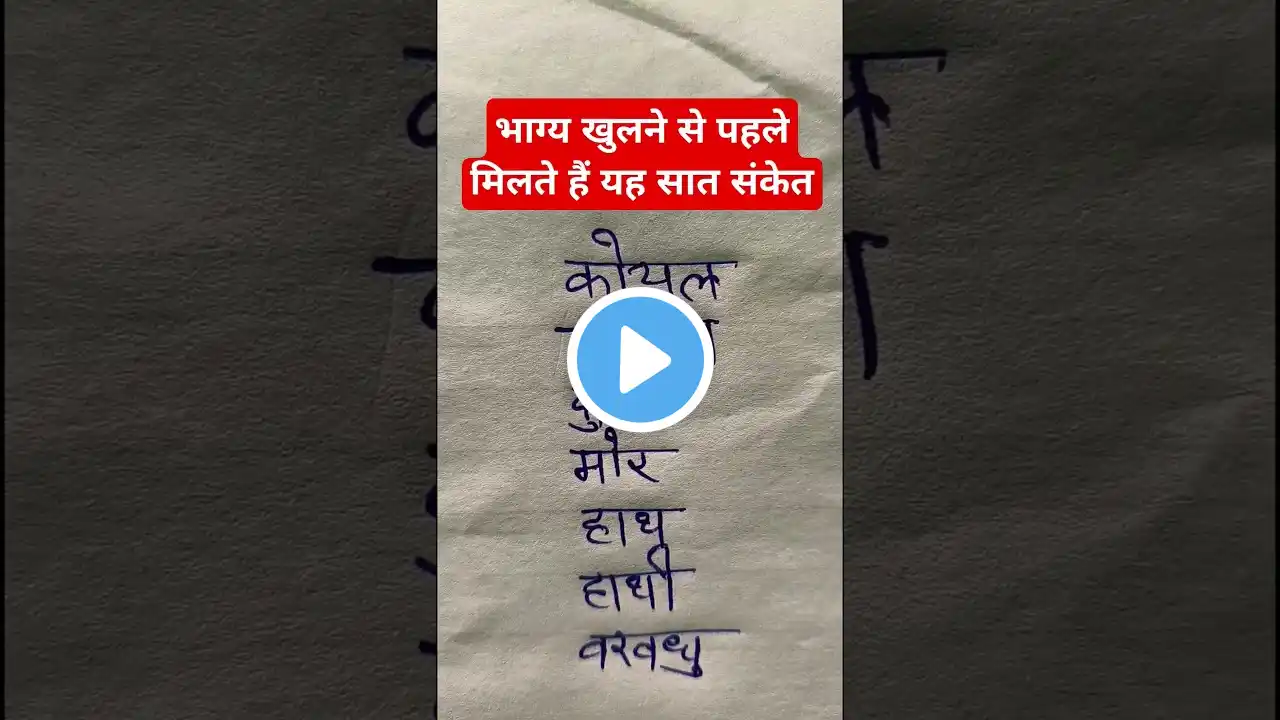 भाग्य खुलने से पहले
मिलते हैं यह सात संकेत
कोयल
मोर
हाथ
हाथी
वरवधु